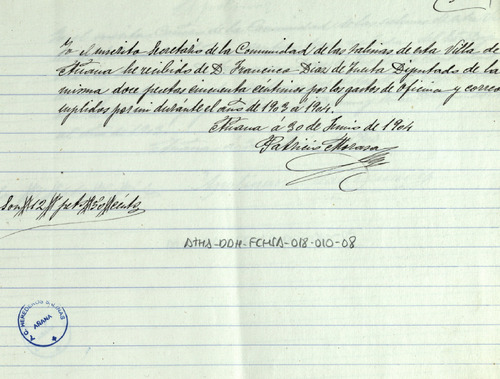 Yo el inscrito Secretário de la Comunidad de las Salinas de esta Villa de
Añana he recibido de D. Francisco Diaz de Junta Diputado de la
misma doce pesetas cincuenta céntimos por los gastos de Oficina y correo
suplidos por mi durante el año de 1903 a 1904.
Añana á 30 de Junio de 1904
Patricio
Son 12 pts 50 cénts
ATHA-DDH-FCHSA-018-010-08
HEREDEROS SALINAS
AÑANA